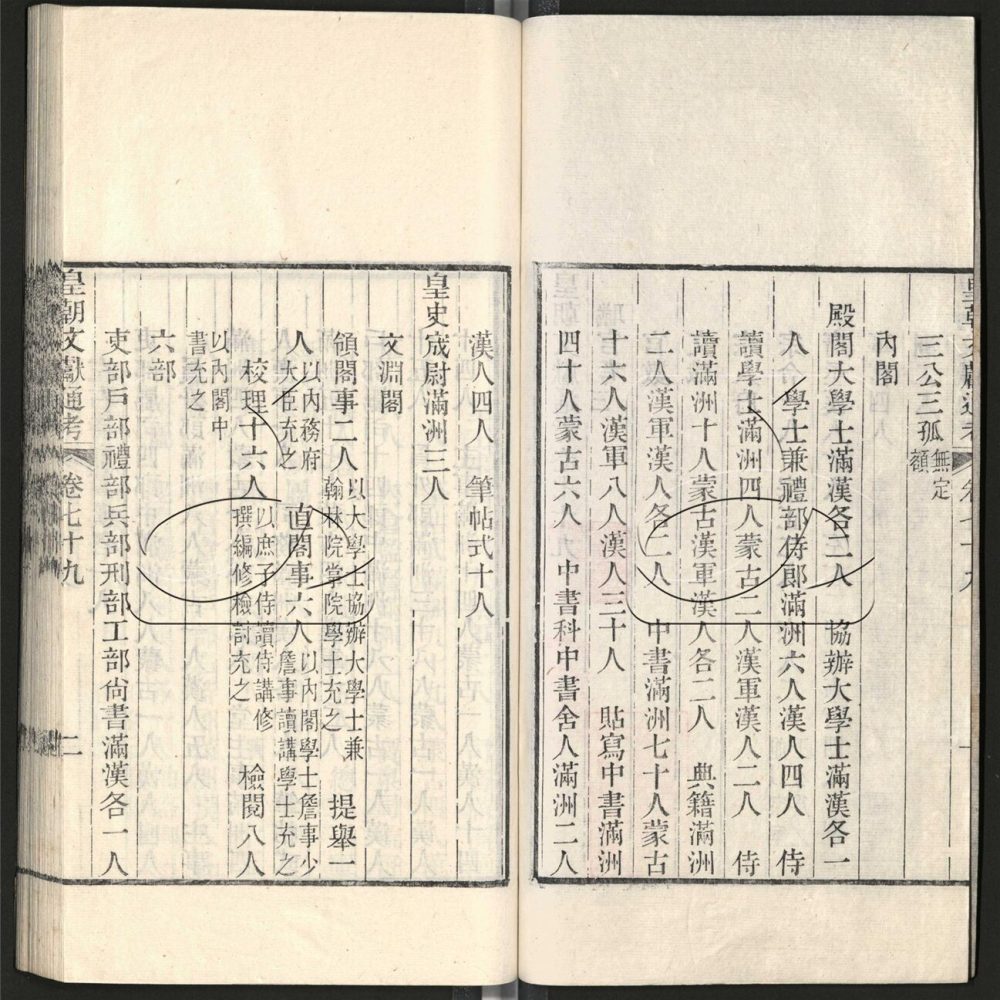 三公三孤無定額
內閣
殿閣大學士滿漢各二人 協辦大學士滿漢各一
人 學士兼禮部侍郎滿洲六人漢人四人 侍
讀學士滿洲四人蒙古二人漢軍漢人二人 侍
讀滿洲十人蒙古漢軍漢人各二人 典籍滿洲
二人漢軍漢人各二人 中書滿洲七十人蒙古
十六人漢軍八人漢人三十人 貼寫中書滿洲
四十人蒙古六人 中書科中書舍人滿洲二人
漢人四人 筆帖式十人
皇史宬尉滿洲三人
文淵閣
領閣事二人以大學士協辦大學士兼翰林院掌院學士充之 提舉一
人以內務府大臣充之 直閣事六人以內閣學士詹事少詹事讀講學士充之
校理十六人以庶子侍讀侍講修撰編修檢討充之 檢閱八人
以內閣中書充之
六部
吏部戶部禮部兵部刑部工部尙書滿漢各一人
皇朝文獻通考 卷七十九 二